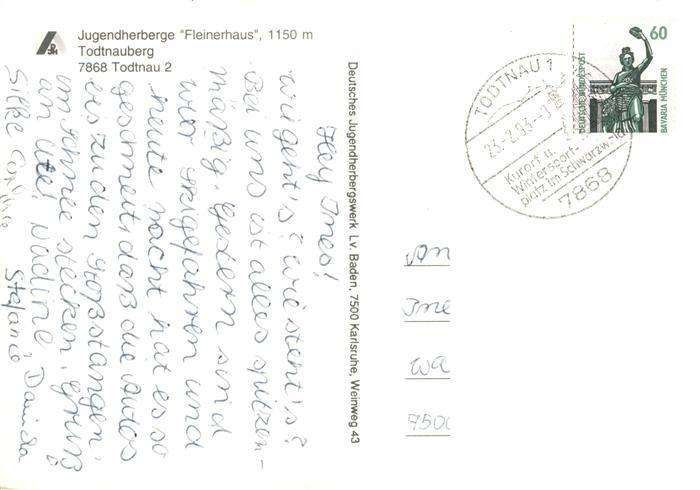 Jugendherberge "Fleinerhaus", 1150 m
Todtnauberg
7868 Todtnau 2
Deutsches Jugendherbergswerk Lv. Baden, 7500 Karlsruhe, Weinweg 43
Hey Ines!
wie geht's? wie steht's?
Bei uns ist alles spitzen-
mäßig. Gestern sind
wir skigefahren und
heute nacht hat es so
geschneit, daß die Autos
bis zu den Stoßstangen
im Schnee stecken. Gruß
an Ute! Nadine, Daniela
Silke Stefanie
TODTNAU 1
23.-2.93.-
Kurort u.
Wintersport-
platz im Schwarzw
7868
60
DEUTSCHE BUNDESPOST
BAVARIA MÜNCHEN
An
Ine
Wa
750